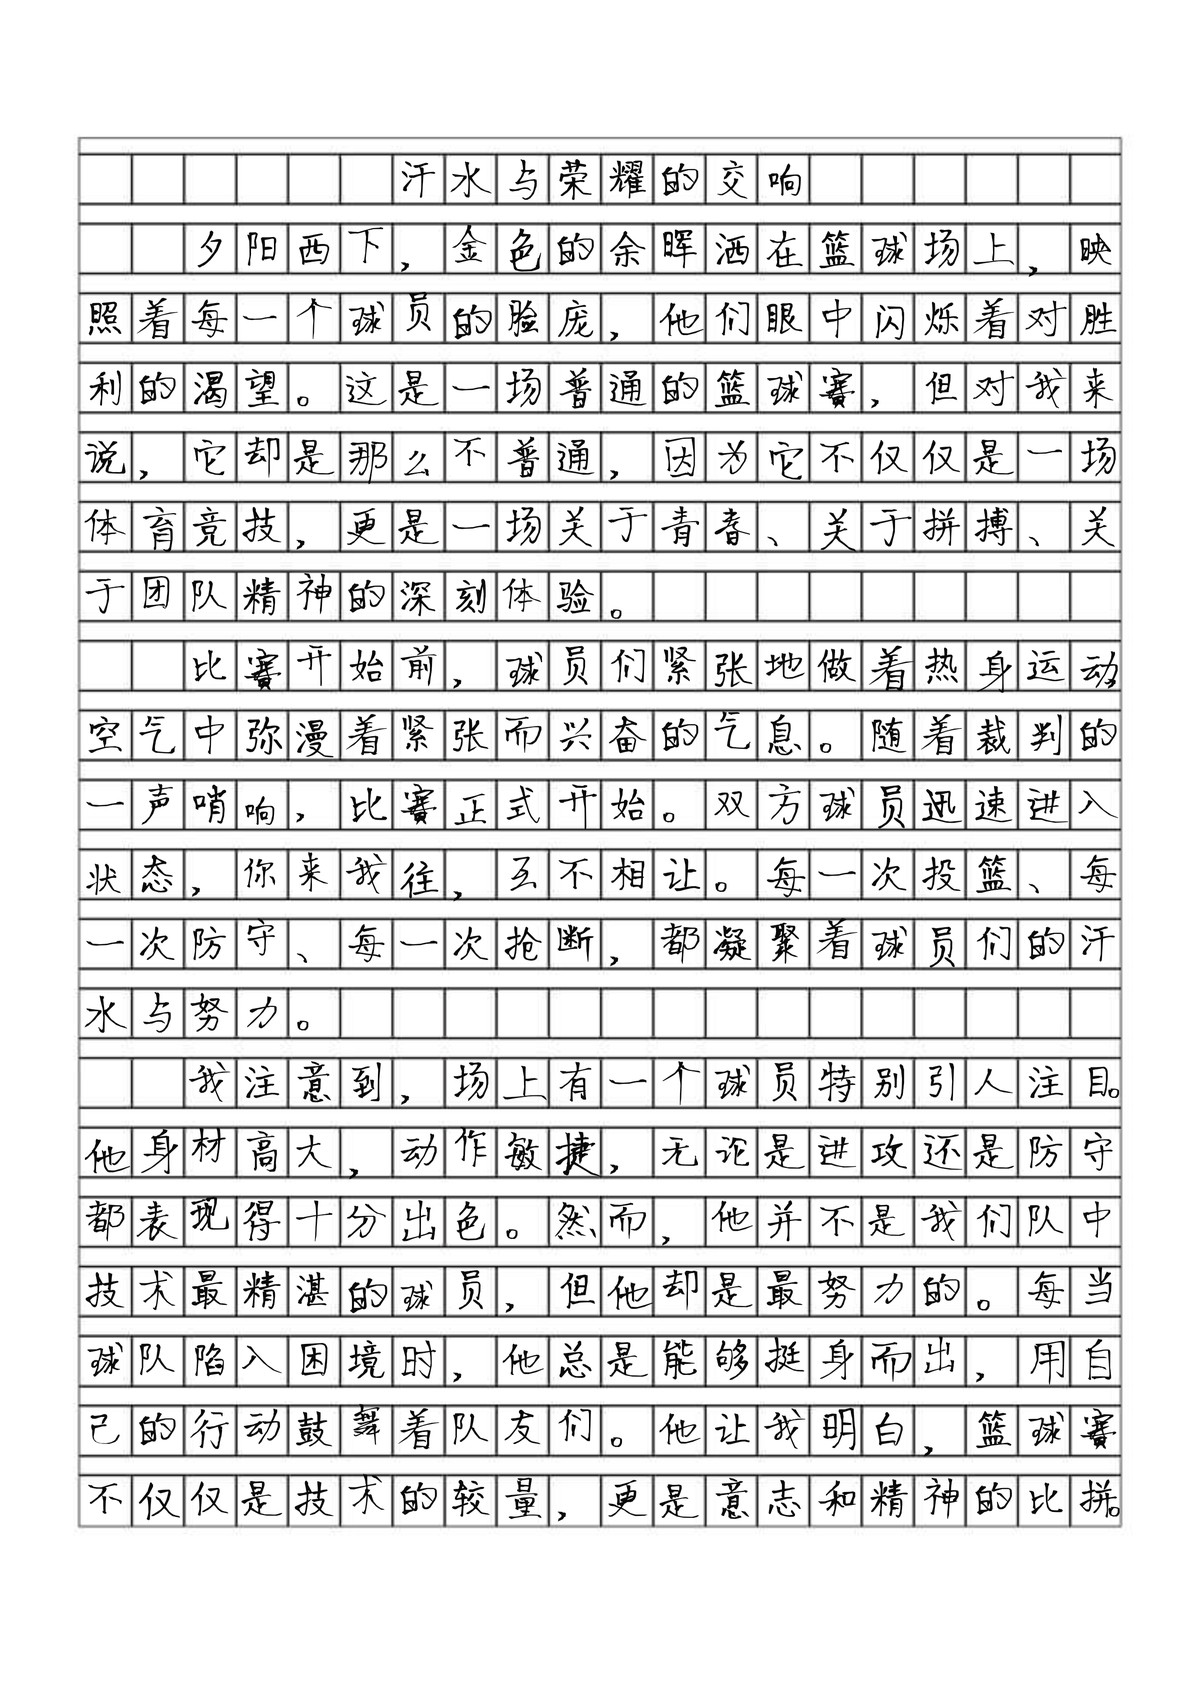 汗水与荣耀的交响
夕阳西下，金色的余晖洒在篮球场上，映
照着每一个球员的脸庞，他们眼中闪烁着对胜
利的渴望。这是一场普通的篮球赛，但对我来
说，它却是那么不普通，因为它不仅仅是一场
体育竞技，更是一场关于青春、关于拼搏、关
于团队精神的深刻体验。
比赛开始前，球员们紧张地做着热身运动，
空气中弥漫着紧张而兴奋的气息。随着裁判的
一声哨响，比赛正式开始。双方球员迅速进入
状态，你来我往，互不相让。每一次投篮、每
一次防守、每一次抢断，都凝聚着球员们的汗
水与努力。
我注意到，场上有一个球员特别引人注目。
他身材高大，动作敏捷，无论是进攻还是防守
都表现得十分出色。然而，他并不是我们队中
技术最精湛的球员，但他却是最努力的。每当
球队陷入困境时，他总是能够挺身而出，用自
己的行动鼓舞着队友们。他让我明白，篮球赛
不仅仅是技术的较量，更是意志和精神的比拼。